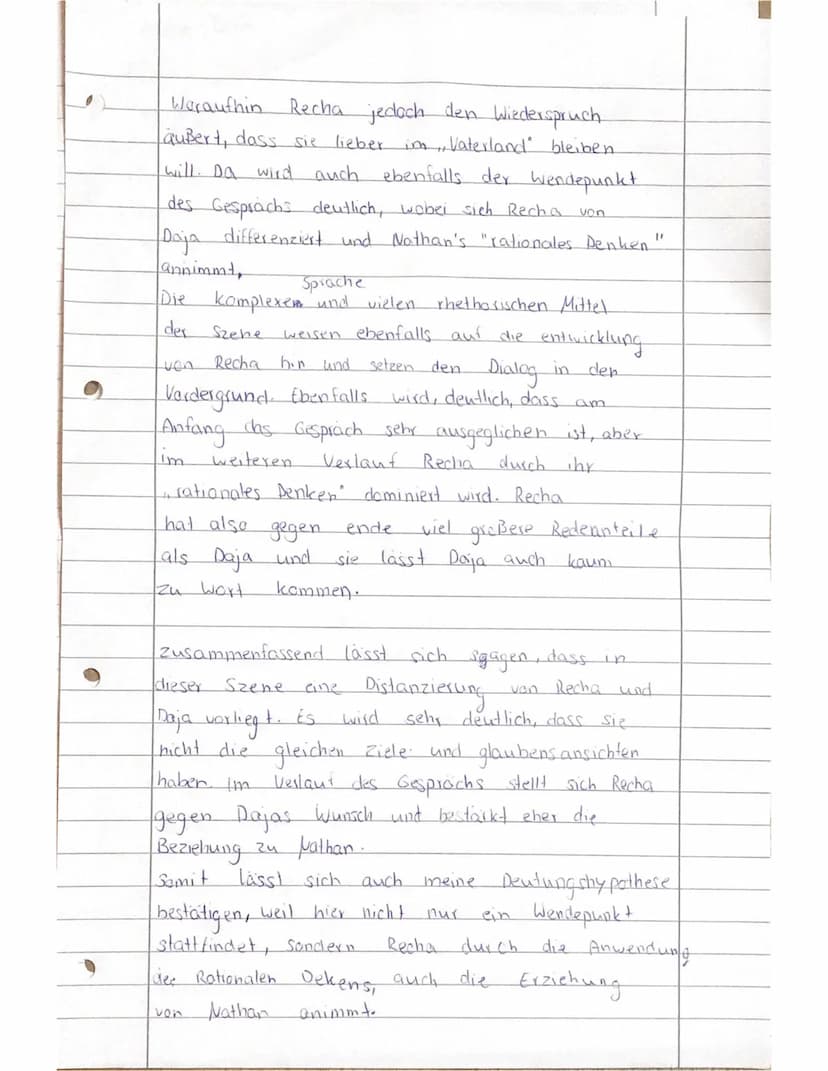 Woraufhin Recha jedoch den Wiederspruch
äußert, dass sie lieber im „Vaterland" bleiben
will. Da wird auch ebenfalls der Wendepunkt
des Gesprächs deutlich, wobei sich Recha von
Daja differenziert und Nathan's "rationales Denken"
annimmt,
Sprache
Die komplexen und vielen rhethorischen Mittel
der Szene weisen ebenfalls auf die entwicklung
von Recha hin und setzen den Dialog in den
Vordergrund. Ebenfalls wird, deutlich, dass am
Anfang das Gespräch sehr ausgeglichen ist, aber
im weiteren Verlauf Recha durch ihr
„rationales Denken" dominiert wird. Recha
hat also gegen ende viel größere Redeanteile
als Daja und sie lässt Daja auch kaum
zu Wort kommen.
Zusammenfassend lässt sich sagen, dass in
dieser Szene eine Distanzierung von Recha und
Daja vorliegt. Es wird sehr deutlich, dass sie
nicht die gleichen Ziele und glaubensansichten
haben. Im Verlauf des Gesprächs stellt sich Recha
gegen Dajas Wunsch und bestärkt eher die
Beziehung zu Nathan.
Somit lässt sich auch meine Deutungshypothese
bestätigen, weil hier nicht nur ein Wendepunkt
stattfindet, sondern Recha durch die Anwendung
des Rationalen Dekens, auch die Erziehung
von Nathan animmt.